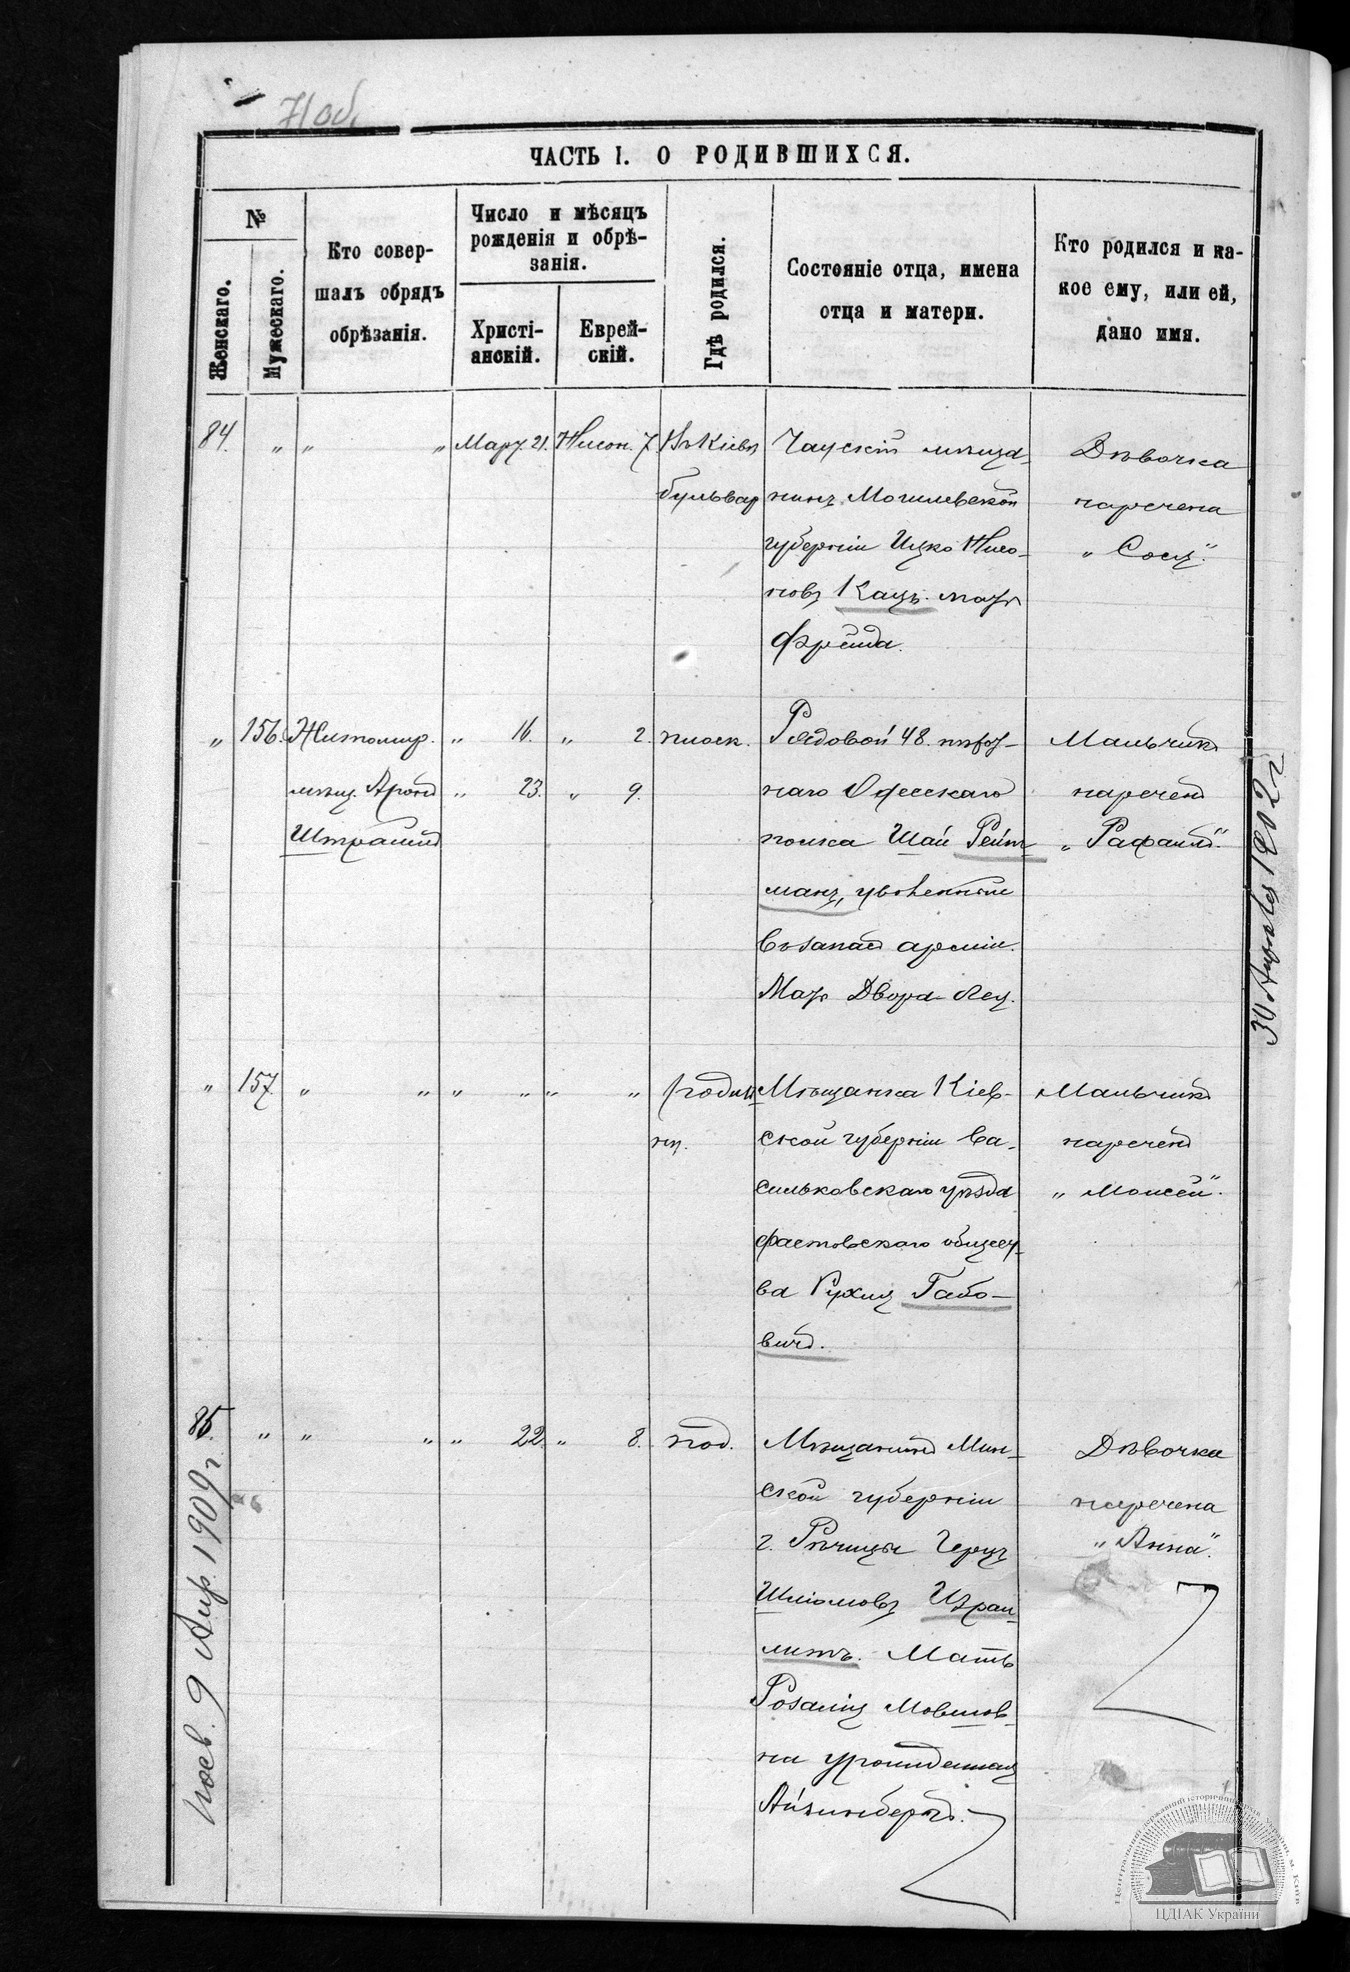 71 об.
ЧАСТЬ I. О РОДИВШИХСЯ.
№
Женскаго.
Мужескаго.
Кто совер-
шалъ обрядъ
обрѣзанія.
Число и мѣсяцъ
рожденія и обрѣ-
занія.
Христі-
анскій.
Еврей-
скій.
Гдѣ родился.
Состояніе отца, имена
отца и матери.
Кто родился и ка-
кое ему, или ей,
дано имя.
84. " " " Март. 21. Нисон. 7
Въ Кіевѣ
бульвар
Чаускій мѣща-
нинъ Могилевской
губерніи Ицко Нисо-
новъ Кацъ. мать
Фрейда.
Дѣвочка
наречена
" Сося".
" 156. Житомир.
мѣщ. Аронъ
Штраймъ
" 16. " 2.
" 23. " 9.
плоск.
Рядовой 48. пѣхот-
наго Одесскаго
полка Шай Рейт-
манъ, уволенный
въ запасъ арміи.
Мать Двора-Лея.
Мальчикъ
нареченъ
" Рафаилъ".
" 157 " " " " " "
родил
Мѣщанка Кіев-
ской губерніи Ва-
сильковскаго уѣзда
фастовскаго общест-
ва Рухля Габо-
вичъ.
Мальчикъ
нареченъ
" Моисей".
85. " " " " 22. " 8. под.
Мѣщанинъ Мин-
ской губерніи
г. Рѣчицы Герцъ
Шліомовъ Израи-
литъ. Мать
Розалія Мовшов-
на урожденная
Айзинбергъ.
Дѣвочка
наречена
" Анна".
9 Апр. 1909 г.
30 1902 г
ЦДІАК України